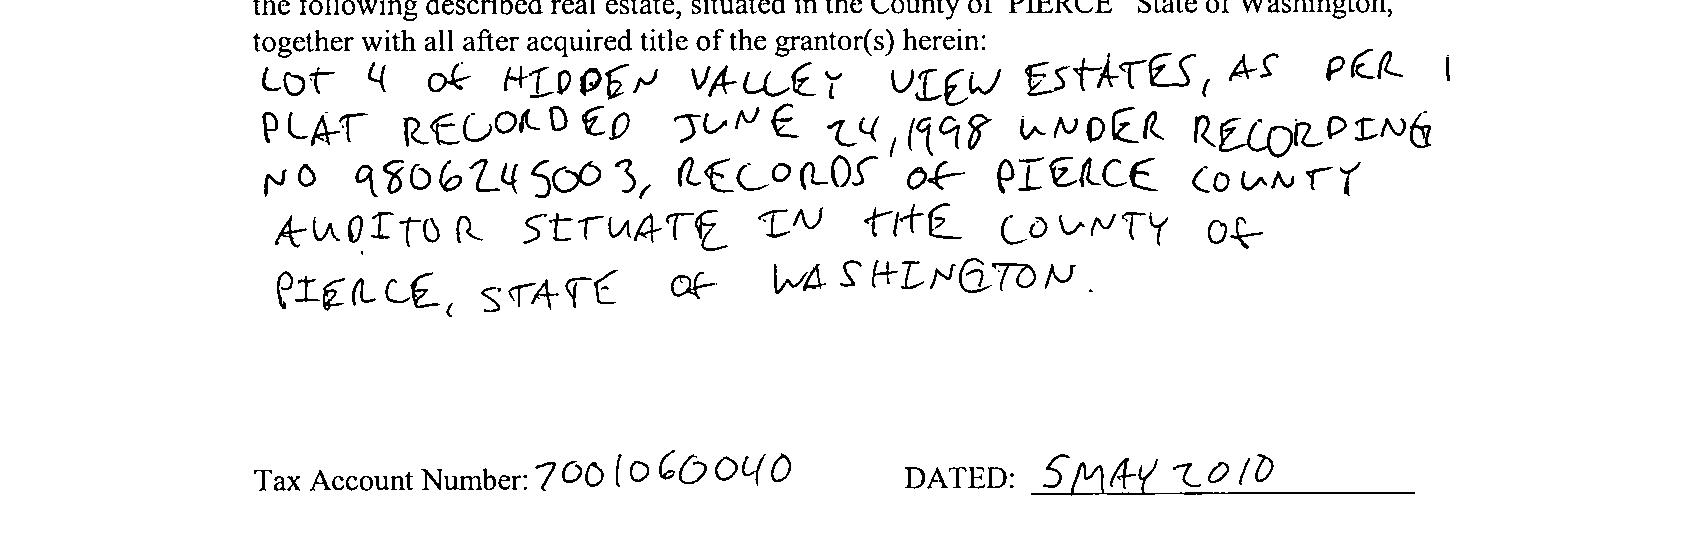 the following described real estate, situated in the County of PIERCE State of Washington,
together with all after acquired title of the grantor(s) herein:
LOT 4 of HIDDEN VALLEY VIEW ESTATES, AS PER
PLAT RECORDED JUNE 24, 1998 UNDER RECORDING
NO 9806245003, RECORDS of PIERCE COUNTY
AUDITOR SITUATE IN THE COUNTY of
PIERCE, STATE of WASHINGTON.
Tax Account Number: 7001060040 DATED: 5 MAY 2010